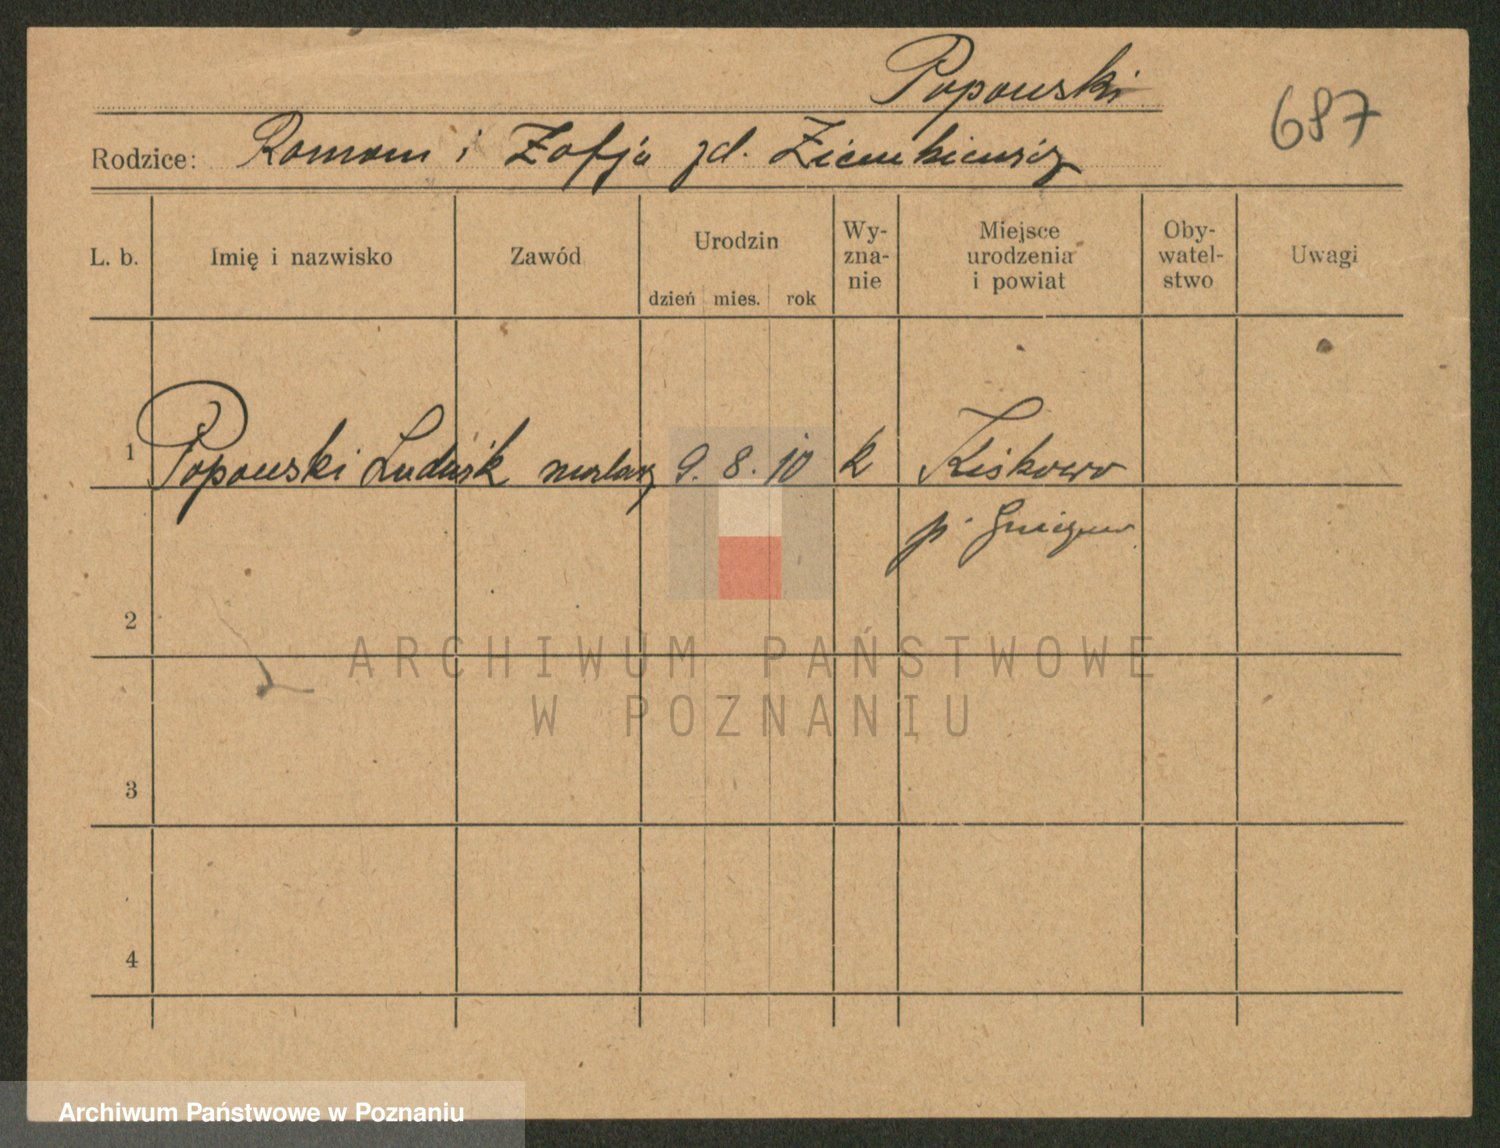 Popowski
687
Rodzice: Roman i Zofja zd. Ziemkiewicz
L. b. Imię i nazwisko Zawód Urodzin dzień mies. rok Wy-zna-nie Miejsce urodzenia i powiat Oby-watel-stwo Uwagi
1 Popowski Ludwik murarz 9. 8. 10 k Kiszkowo
p.
2
ARCHIWUM PAŃSTWOWE
W POZNANIU
3
4
Archiwum Państwowe w Poznaniu